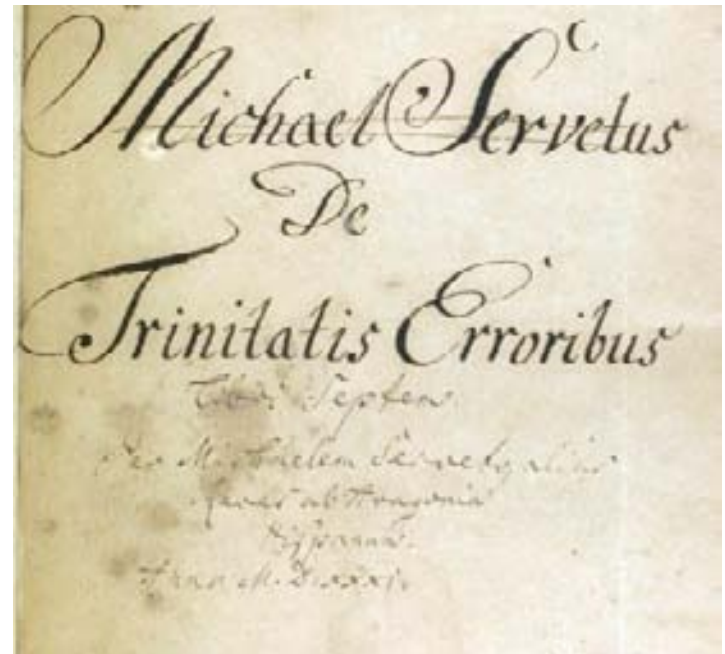 Michael Servetus
De
Trinitatis Erroribus
Libri Septem.
Per Michaelem
ab Aragonia
Hispanum.
Anno M. Dxxxi.